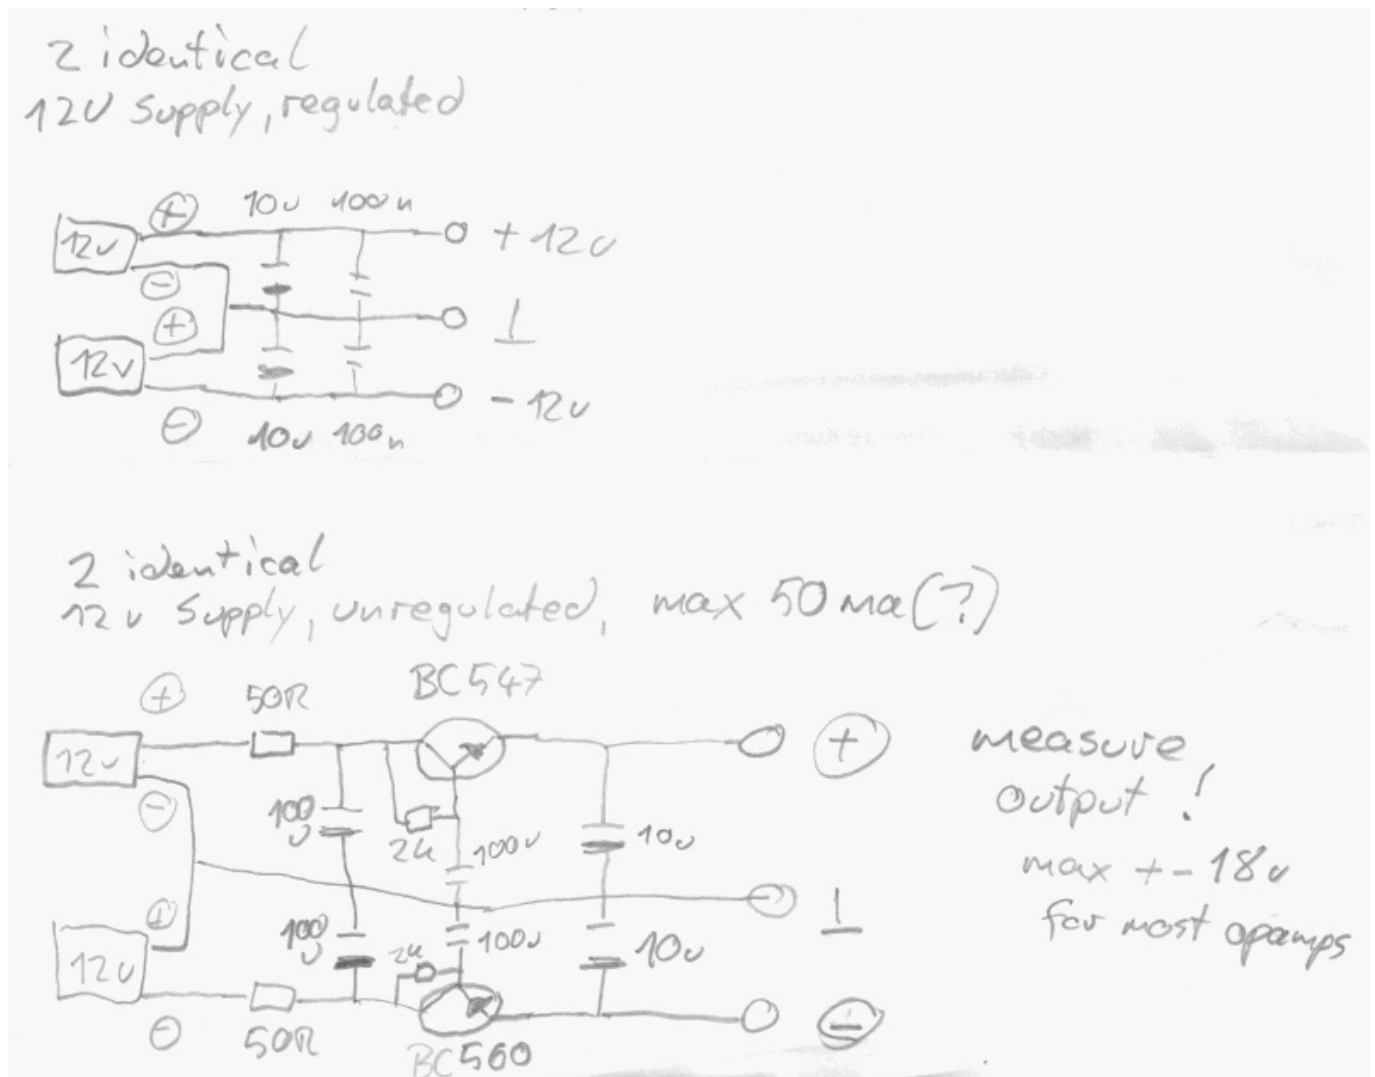 2 identical
12V Supply, regulated
+ 10u 100n
12v + 12v
-
+ ⊥
12v
- 12v
- 10u 100n
2 identical
12v Supply, unregulated, max 50ma(?)
BC547
+ 50R
12v + measure
- 100u 2k 100u 10u output!
max +- 18v
+ ⊥ for most opamps
100u 2k 100u 10u
12v
- 50R -
BC560